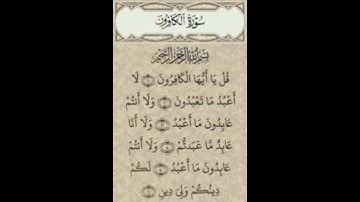 سُورَةُ ٱلْكَافِرُونَ
بِسْمِ ٱللَّهِ ٱلرَّحْمَٰنِ ٱلرَّحِيمِ
قُلْ يَا أَيُّهَا الْكَافِرُونَ ۝ لَا
أَعْبُدُ مَا تَعْبُدُونَ ۝ وَلَا أَنتُمْ
عَابِدُونَ مَا أَعْبُدُ ۝ وَلَا أَنَا
عَابِدٌ مَّا عَبَدتُّمْ ۝ وَلَا أَنتُمْ
عَابِدُونَ مَا أَعْبُدُ ۝ لَكُمْ
دِينُكُمْ وَلِيَ دِينِ ۝